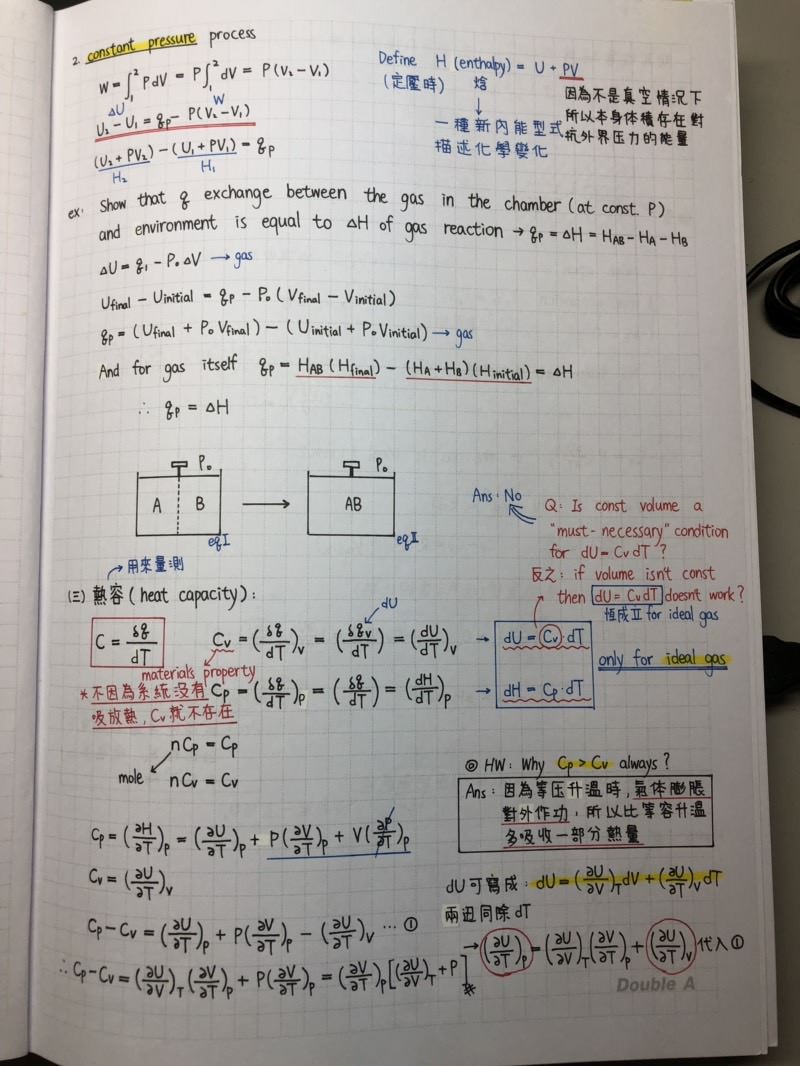 2. constant pressure process
W = ∫₁² PdV = P∫₁² dV = P(V₂ - V₁)
ΔU W
U₂ - U₁ = qp - P(V₂ - V₁)
(U₂ + PV₂) - (U₁ + PV₁) = qp
H₂ H₁
Define H (enthalpy) = U + PV
(定壓時) 焓
↓
一種新內能型式
描述化學變化
因為不是真空情況下
所以本身体積存在對
抗外界压力的能量
ex. Show that q exchange between the gas in the chamber (at const. P)
and environment is equal to ΔH of gas reaction → qp = ΔH = HAB - HA - HB
ΔU = q₁ - P₀ΔV → gas
Ufinal - Uinitial = qp - P₀(Vfinal - Vinitial)
qp = (Ufinal + P₀Vfinal) - (Uinitial + P₀Vinitial) → gas
And for gas itself qp = HAB (Hfinal) - (HA + HB)(Hinitial) = ΔH
∴ qp = ΔH
P₀ P₀
A B → AB
eqI eqII
Ans: No
Q: Is const volume a
"must-necessary" condition
for dU = CvdT ?
反之: if volume isn't const
then dU = CvdT doesn't work?
恆成立 for ideal gas
→ 用來量測
(三) 熱容 (heat capacity):
dU
C = δq/dT Cv = (δq/dT)v = (δqv/dT) = (dU/dT)v → dU = Cv·dT
materials property
only for ideal gas
*不因為系統沒有
吸放熱, Cv就不存在
Cp = (δq/dT)p = (δq/dT) = (dH/dT)p → dH = Cp·dT
nCp = Cp
mole nCv = Cv
◎ HW: Why Cp > Cv always?
Ans: 因為等压升溫時, 氣体膨脹
對外作功, 所以比等容升溫
多吸收一部分熱量
Cp = (∂H/∂T)p = (∂U/∂T)p + P(∂V/∂T)p + V(∂P/∂T)p
Cv = (∂U/∂T)v
dU可寫成: dU = (∂U/∂V)T dV + (∂U/∂T)v dT
兩边同除dT
Cp - Cv = (∂U/∂T)p + P(∂V/∂T)p - (∂U/∂T)v … ①
→ (∂U/∂T)p = (∂U/∂V)T (∂V/∂T)p + (∂U/∂T)v 代入①
∴ Cp - Cv = (∂U/∂V)T (∂V/∂T)p + P(∂V/∂T)p = (∂V/∂T)p [(∂U/∂V)T + P] *
Double A